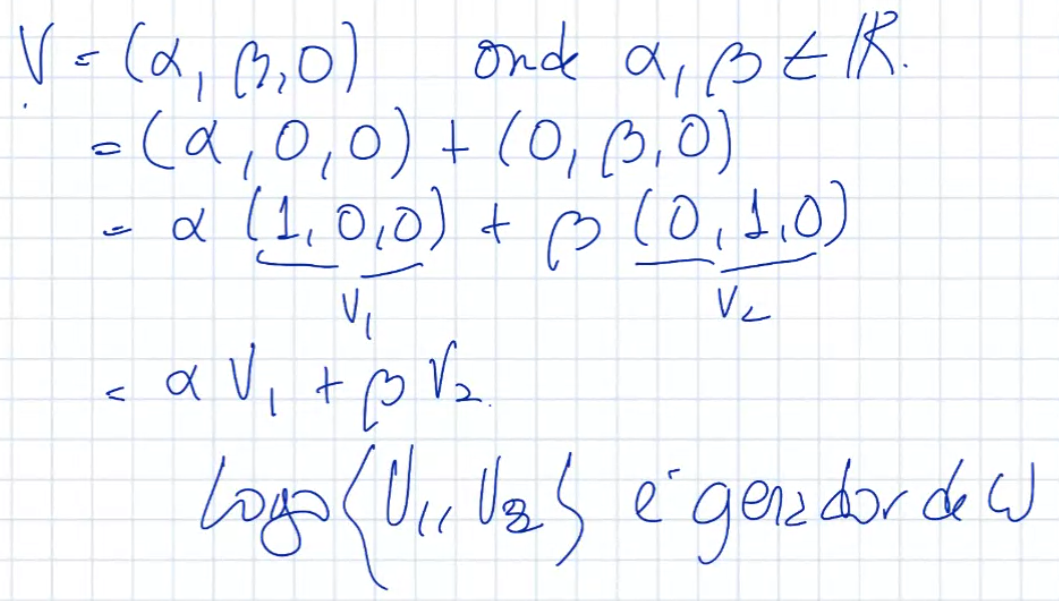 V = (α, β, 0) onde α, β ∈ ℝ.
= (α, 0, 0) + (0, β, 0)
= α (1, 0, 0) + β (0, 1, 0)
V₁ V₂
= α V₁ + β V₂.
Logo {V₁, V₂} é gerador de W